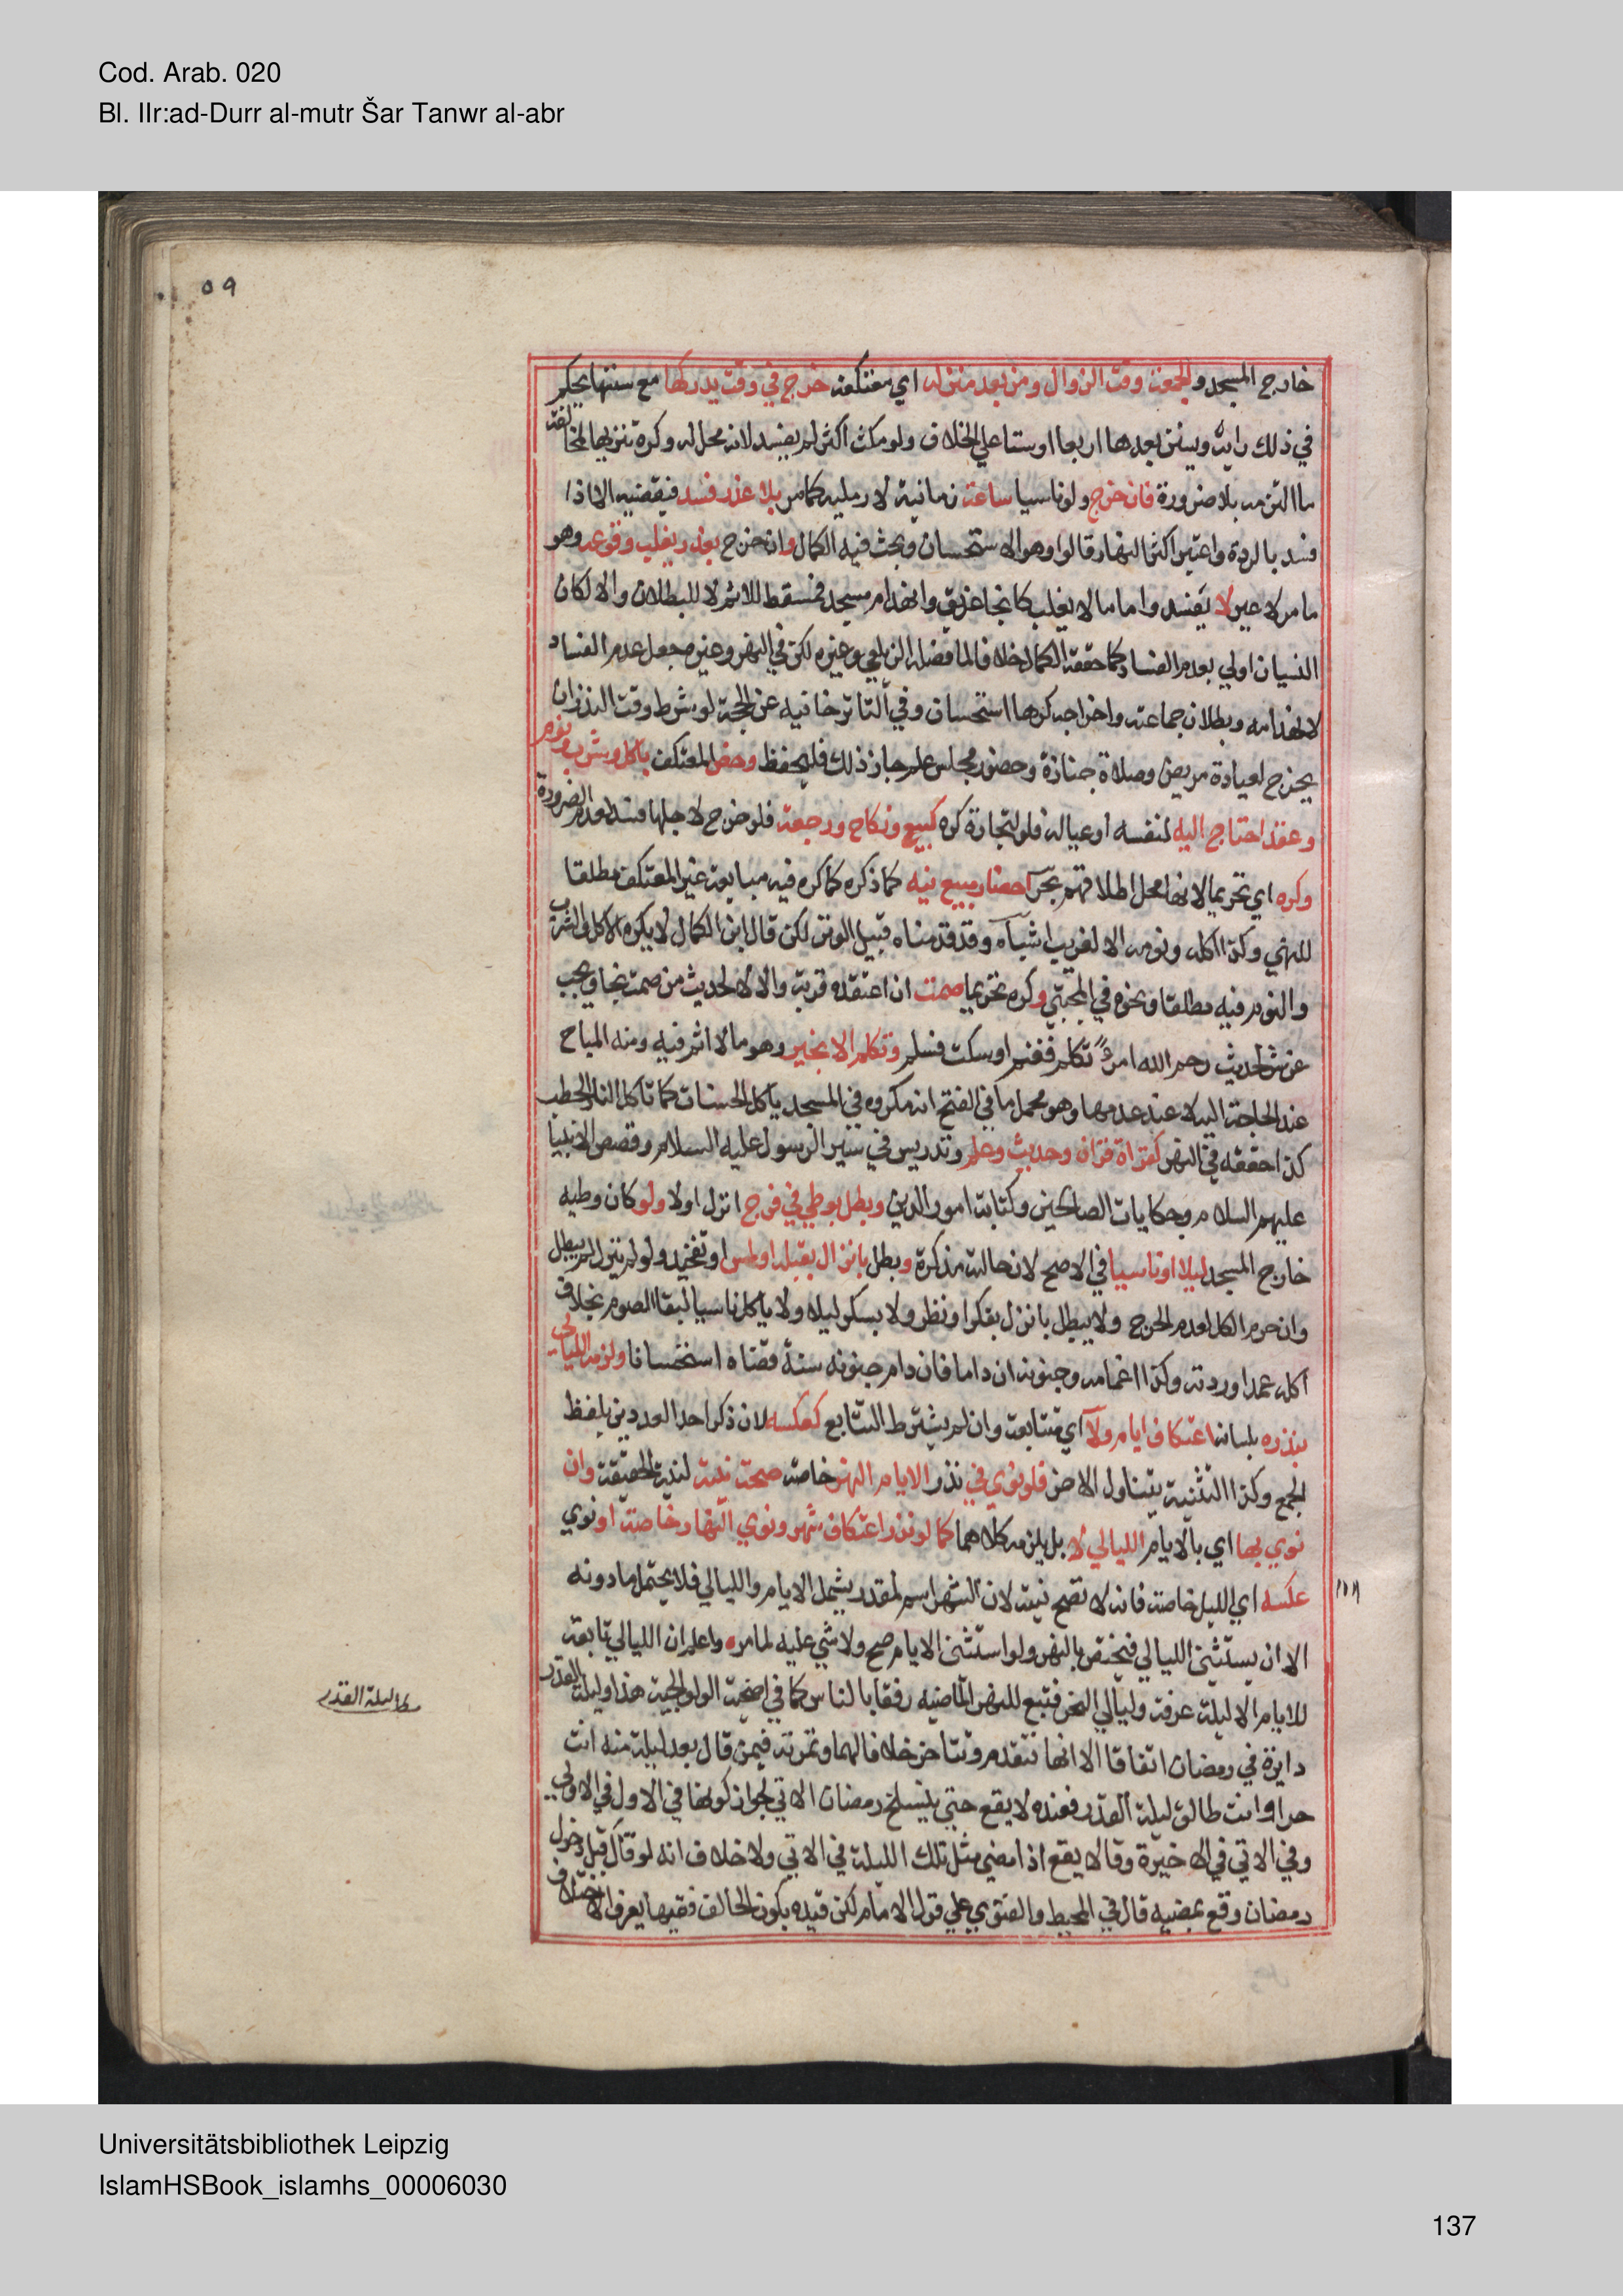 Cod. Arab. 020
Bl. IIr:ad-Durr al-mutr Šar Tanwr al-abr
٥٩
خارج المسجد والجمعة وقت الزوال ومن بعد منزله اي معتكفه خرج في وقت يدركها مع سنتها يحكم
في ذلك رايه ويستن بعدها اربعا او ستا علي الخلاف ولو مكث اكثر لم يفسد لانه محل له وكره تنزيها لمخالفة
ما التزمه بلا ضرورة فان خرج ولو ناسيا ساعة زمانية لا رملية كما مر بلا عذر فسد فيقضيه الا اذا
فسد بالردة واعتبر اكثر النهار قالوا وهو الاستحسان وبحث فيه الكمال وان خرج بعذر يغلب وقوعه وهو
ما مر لا غير لا يفسد واما ما لا يغلب كانجا غريق وانهدام مسجد فمسقط للاثم لا للبطلان والا لكان
النسيان اولي بعدم الفساد كما حققه الكمال خلافا لما فصله الزيلعي وغيره لكن في النهر وغيره جعل عدم الفساد
لانهدامه وبطلان جماعته واخراجه كرها استحسان وفي التاترخانيه عن الحجة لو شرط وقت النذر ان
يخرج لعيادة مريض وصلاة جنازة وحضور مجلس علم جاز ذلك فليحفظ وخص المعتكف باكل وشرب ونوم
وعقد احتاج اليه لنفسه او عياله فلو لتجارة كره كبيع ونكاح ورجعة فلو خرج لاجلها فسد لعدم الضرورة
وكره اي تحريما لانها محل اطلاقهم بحر احضار مبيع فيه كما كره فيه مبايعة غير المعتكف مطلقا
للنهي وكذا اكله ونومه الا لغريب اشباه وقد قدمناه قبيل الوتر لكن قال ابن الكمال لا يكره الاكل والشرب
والنوم فيه مطلقا ونحوه في المجتبي وكره تحريما صمت ان اعتقده قربة والا لا لحديث من صمت نجا ويجب
عن شر لحديث رحم الله امرءً تكلم فغنم او سكت فسلم وتكلم الا بخير وهو ما لا اثم فيه ومنه المباح
عند الحاجة اليه لا عند عدمها وهو محمل ما في الفتح انه مكروه في المسجد ياكل الحسنات كما تاكل النار الحطب
كذا حققه في النهر كقراة قران وحديث وعلم وتدريس في سير الرسول عليه السلام وقصص الانبيا
عليهم السلام وحكايات الصالحين وكتابة امور الدين وبطل بوطي في فرج انزل اولا ولو كان وطيه
خارج المسجد ليلا او ناسيا في الاصح لان حالته مذكرة وبطل بانزال بقبلة او لمس او تفخيذ ولو لم ينزل لم يبطل
وان حرم الكل لعدم الحرج ولا يبطل بانزل بفكر او نظر ولا بسكر ليلا ولا ياكل ناسيا لبقا الصوم بخلاف
اكله عمدا وردته وكذا اغماءه وجنونه ان داما فان دام جنونه سنة قضاه استحسانا ولزمه الليالي
بنذره بلسانه اعتكاف ايام ولآ اي متتابعة وان لم يشترط التتابع كعكسه لان ذكر احد العددين بلفظ
الجمع وكذا التثنية يتناول الاخر فلو نوي في نذر الايام النهر خاصة صحت نيته لنية الحقيقة وان
نوي بها اي بالايام الليالي لا بل يلزمه كلاهما كما لو نذر اعتكاف شهر ونوي النهار خاصة او نوي
عكسه اي الليل خاصة فانه لا تصح نيته لان الشهر اسم لمقدر يشمل الايام والليالي فلا يحتمل ما دونه
الا ان يستثني الليالي فيختص بالنهر ولو استثني الايام صح ولا شي عليه لما مر واعلم ان الليالي تابعة
للايام الا ليلة عرفة وليالي النحر فتبع للنهر الماضيه رفقا بالناس كما في اضحية الولوالجية هذا وليلة القدر
مط ليلة القدر
دايرة في رمضان اتفاقا الا انها تتقدم وتتاخر خلافا لهما وثمرته فيمن قال بعد ليلة منه انت
حر او انت طالق ليلة القدر فعنده لا يقع حتي ينسلخ رمضان الاتي لجواز كونها في الاول في الاولي
وفي الاتي في الاخيرة وقالا يقع اذا مضي مثل تلك الليلة في الاتي ولا خلاف انه لو قال قبل دخول
رمضان وقع بمضيه قال في المحيط والفتوي علي قول الامام لكن قيده بكون الحالف فقيها يعرف الاختلاف
Universitätsbibliothek Leipzig
IslamHSBook_islamhs_00006030
137